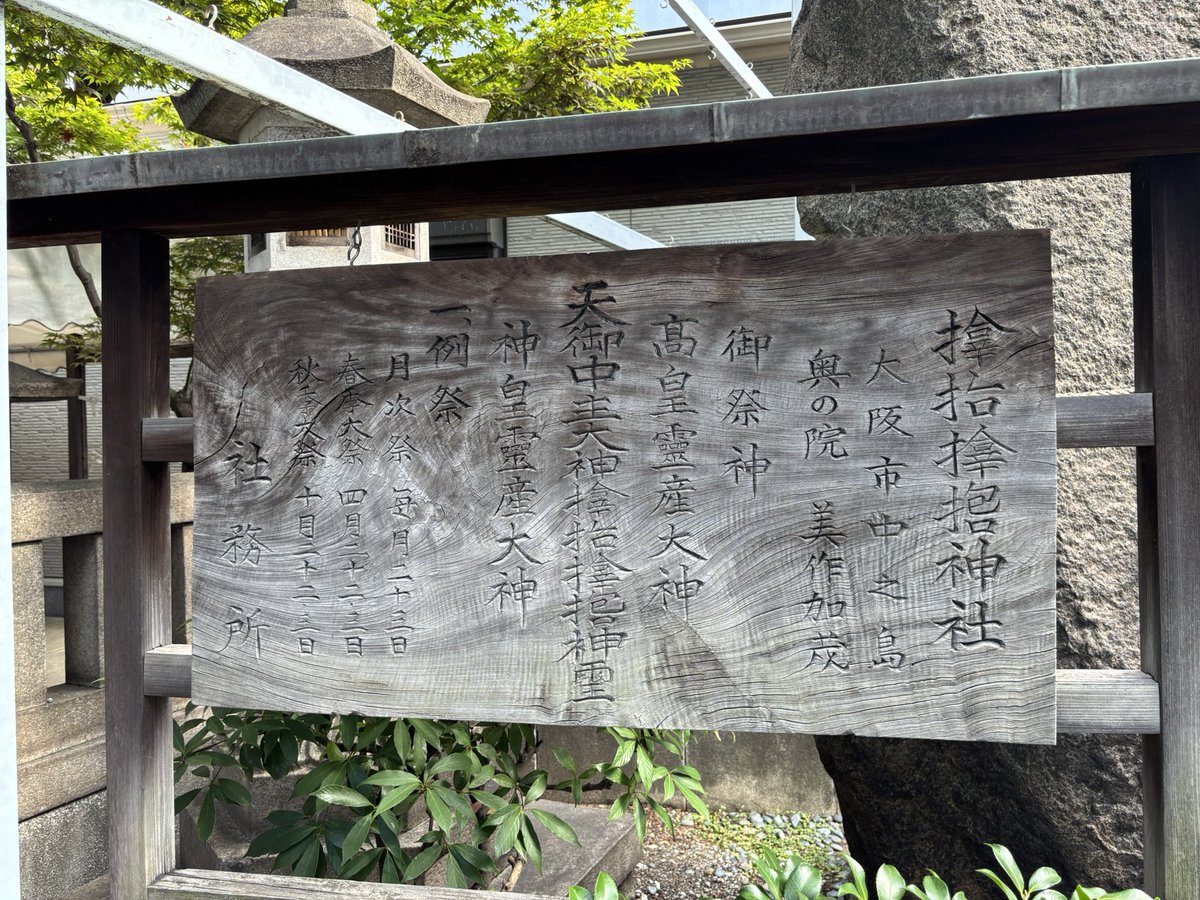 𪮷抬𪮷𪮇神社
大阪市中之島
奥の院 美作加茂
御祭神
髙皇靈産大神
天御中主大神𪮷抬𪮷𪮇神霊
神皇靈産大神
一、例祭
月次祭 毎月二十三日
春季大祭 四月二十二、三日
秋季大祭 十月二十二、三日
社務所